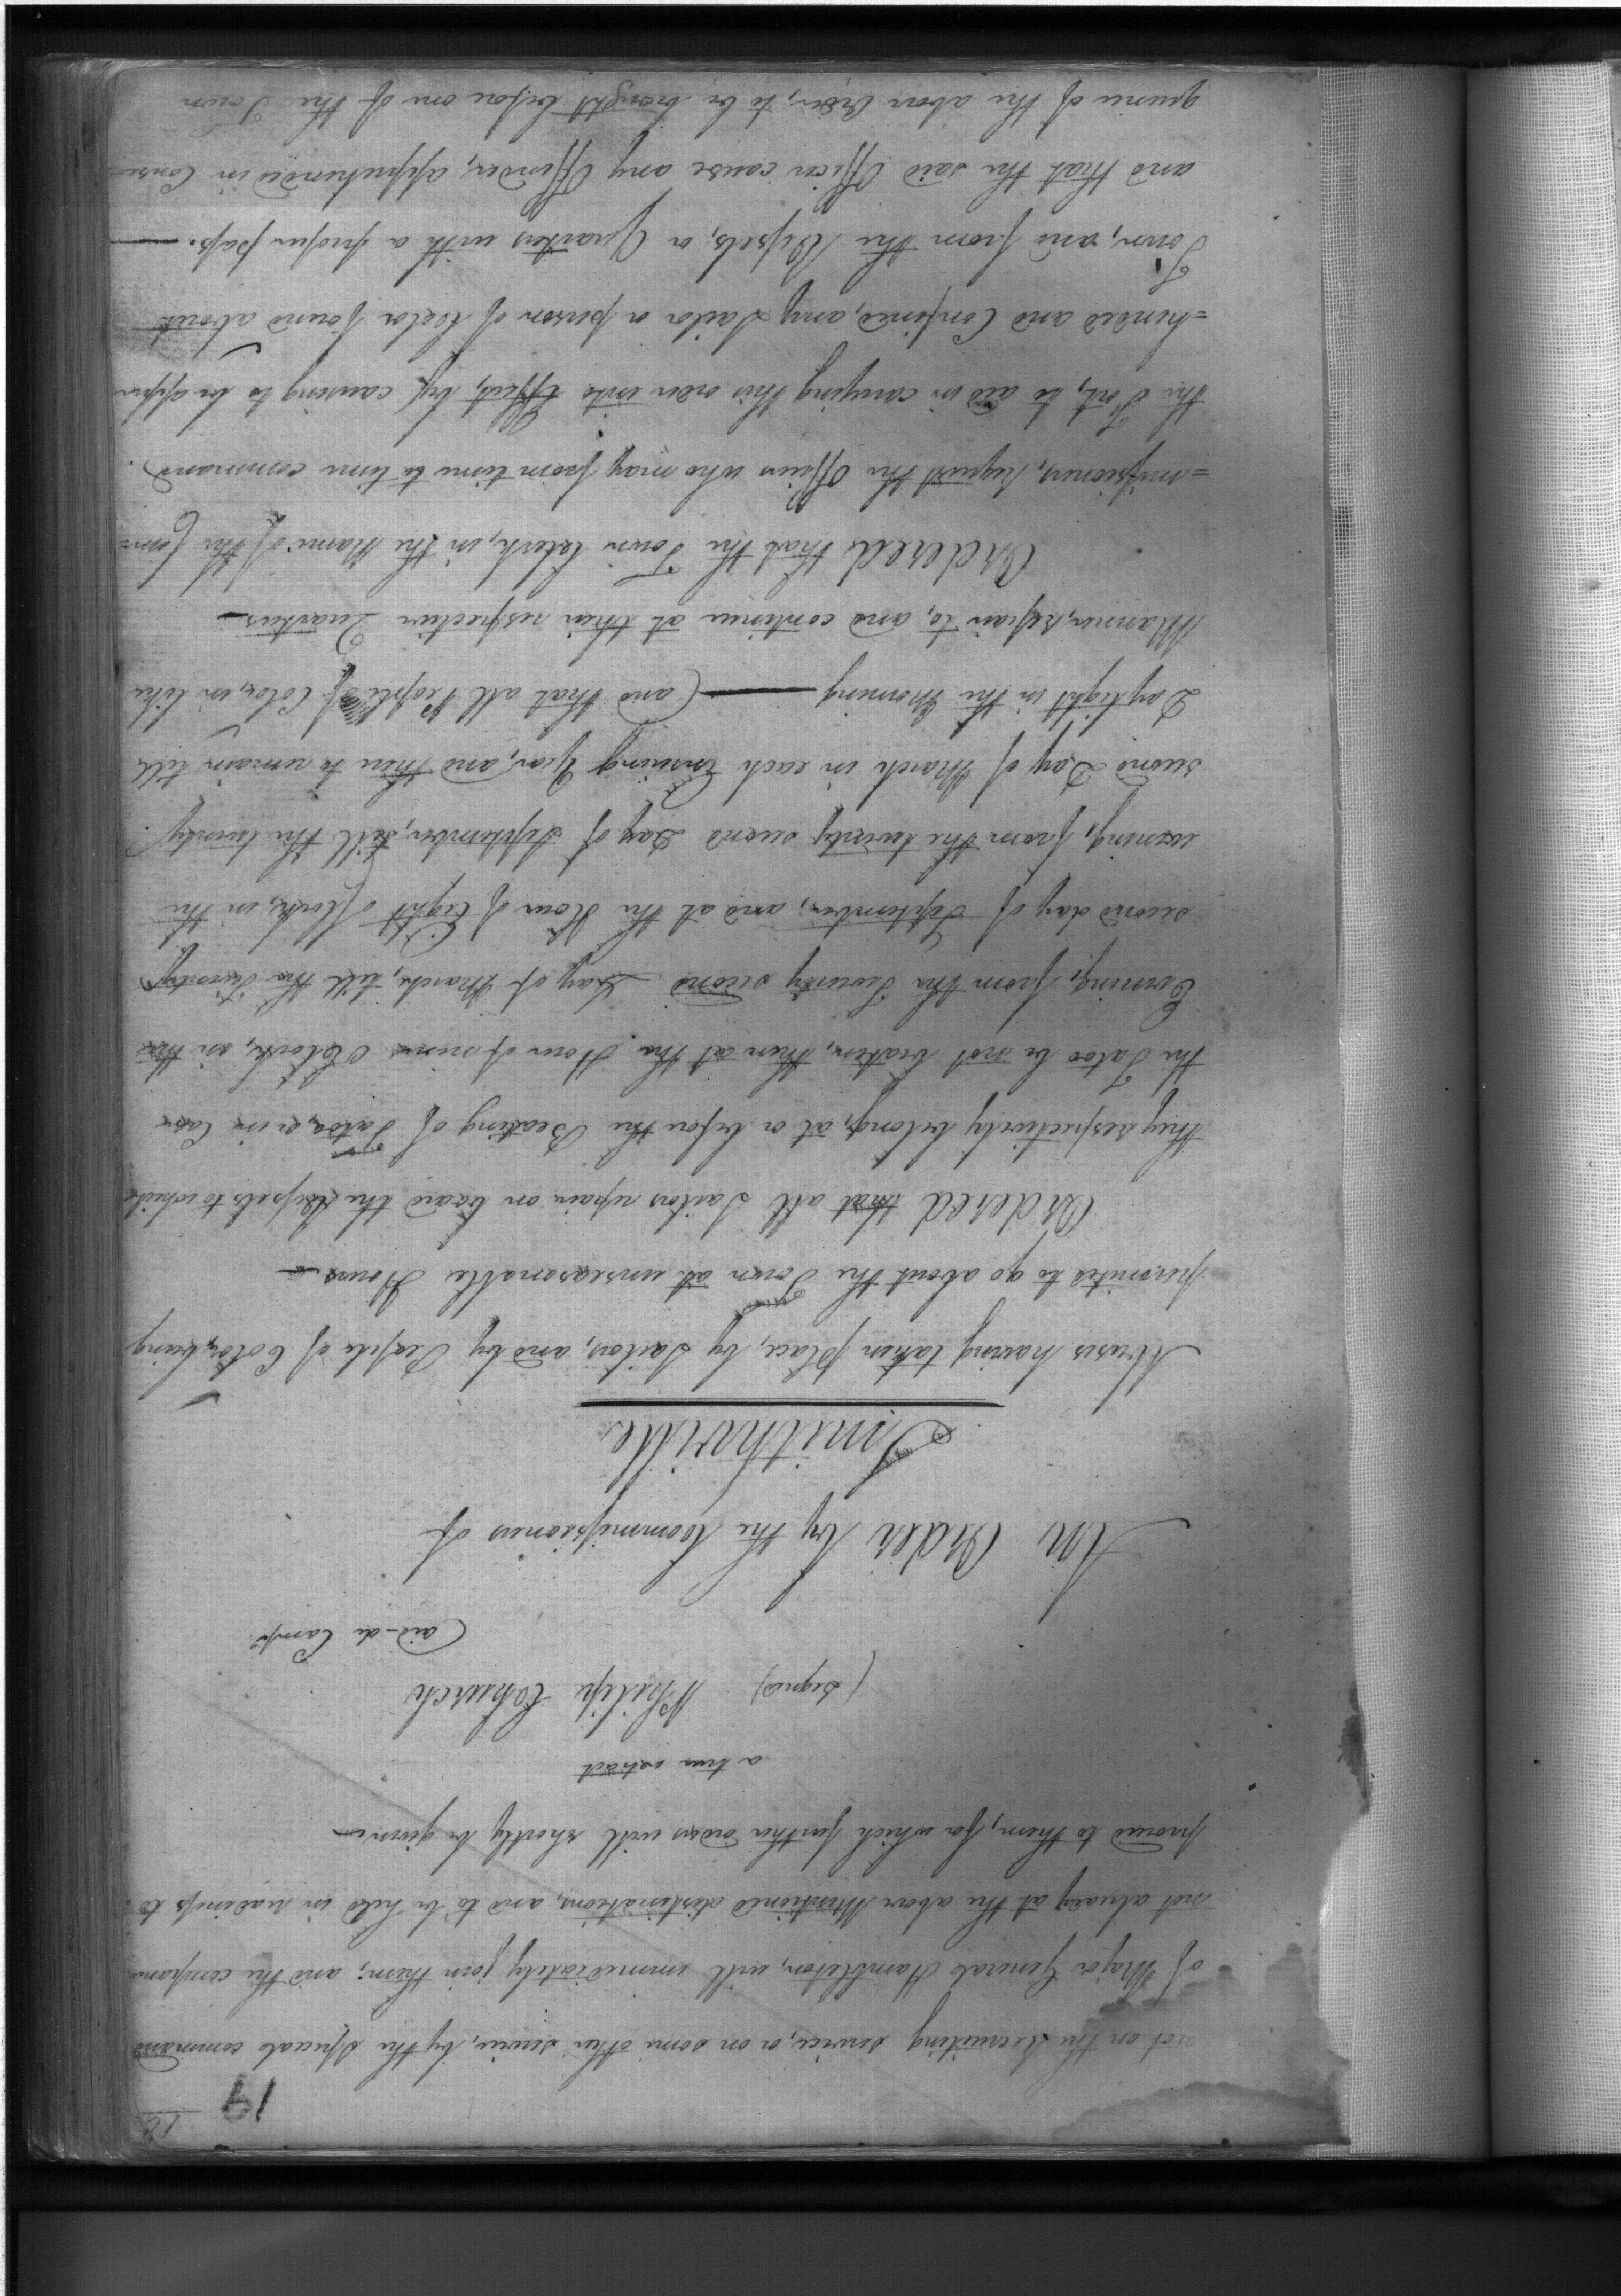 19
not on the Recruiting service, or on some other service, by the Special command
of Major General Hambleton, will immediately join them; and the companies
not already at the above Mentioned destinations, and to be held in readiness to
proceed to them, for which further orders will shortly be given—
a true extract
(Signed) Philip Church
aid-de Camp
An Order by the Commissioners of
Smithville
Abuses having taken place, by Sailors, and by People of Color, being
permited to go about the Town at unseasonable Hours—
Ordered that all Sailors repair on board the Vessels to which
they respectively belong, at or before the Beating of Tatoo, or in Case
the Tatoo be not beaten, then at the Hour of nine OClock, in the
Evening, from the Twenty second Day of March, till the Twenty
second day of September, and at the Hour of Eight OClock, in the
evening, from the twenty second Day of September, till the twenty
second Day of March in each Ensuing Year, and then to remain till
Daylight in the Morning — (and that all People of Color, in like
Manner, repair to, and continue at their respective Quarters—
Ordered that the Town Clerk, in the Name of the Com=
=missioners, Request the Officer who may from time to time command
the Fort, to aid in carrying this order into Effect, by causing to be appre
=hended and Confined, any Sailor or person of Color found about
Town, and from the Vessels, or Quarters with a proper pass.—
and that the said Officer cause any Offender, apprehended in Conse
quence of the above Order, to be brought before one of the Town